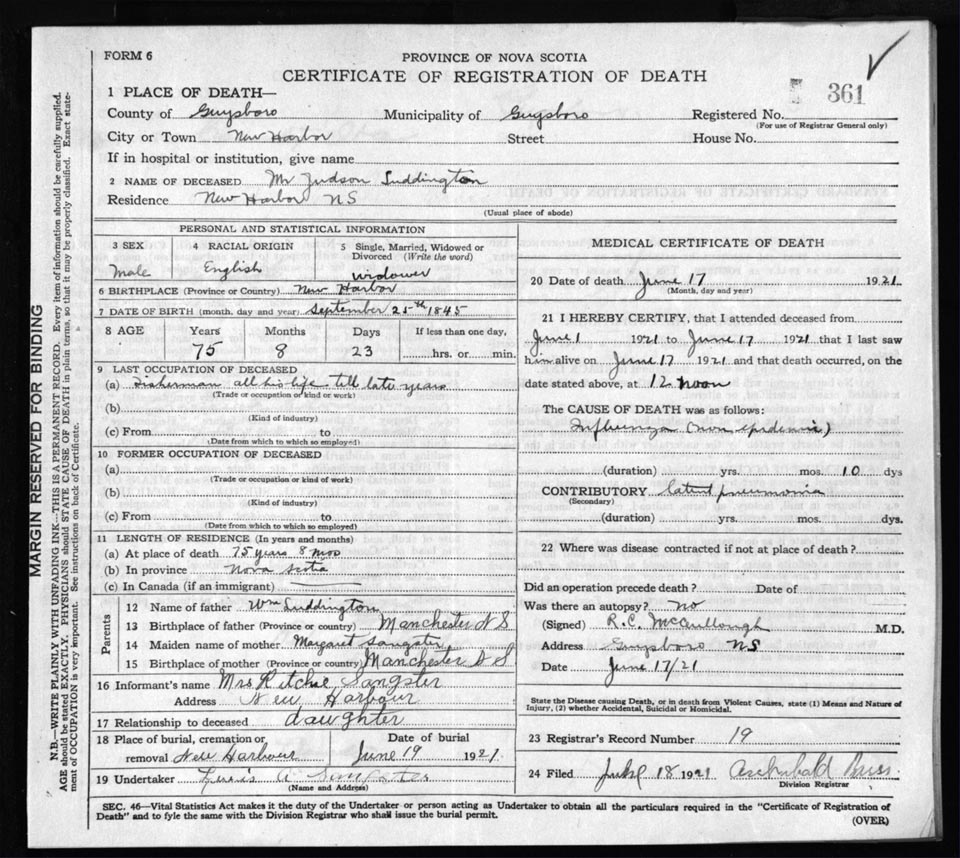 FORM 6
PROVINCE OF NOVA SCOTIA
CERTIFICATE OF REGISTRATION OF DEATH
361
1 PLACE OF DEATH—
County of Guysboro Municipality of Guysboro Registered No.
(For use of Registrar General only)
City or Town New Harbor Street House No.
If in hospital or institution, give name
2 NAME OF DECEASED Mr Judson Luddington
Residence New Harbor NS
(Usual place of abode)
PERSONAL AND STATISTICAL INFORMATION
3 SEX Male
4 RACIAL ORIGIN English
5 Single, Married, Widowed or Divorced (Write the word) widower
6 BIRTHPLACE (Province or Country) New Harbor
7 DATE OF BIRTH (month, day and year) September 25th 1845
8 AGE Years Months Days If less than one day,
75 8 23 hrs. or min.
9 LAST OCCUPATION OF DECEASED
(a) Fisherman all his life till late years
(Trade or occupation or kind or work)
(b)
(Kind of industry)
(c) From to
(Date from which to which so employed)
10 FORMER OCCUPATION OF DECEASED
(a)
(Trade or occupation or kind of work)
(b)
(Kind of industry)
(c) From to
(Date from which to which so employed)
11 LENGTH OF RESIDENCE (In years and months)
(a) At place of death 75 years 8 mos
(b) In province Nova Scotia
(c) In Canada (if an immigrant)
Parents
12 Name of father Wm Luddington
13 Birthplace of father (Province or country) Manchester N S
14 Maiden name of mother Margaret Sangster
15 Birthplace of mother (Province or country) Manchester N S
16 Informant's name Mrs Ritchie Sangster
Address New Harbour
17 Relationship to deceased daughter
18 Place of burial, cremation or removal New Harbour
Date of burial June 19 1921
19 Undertaker Lewis A Sangster
(Name and Address)
MEDICAL CERTIFICATE OF DEATH
20 Date of death June 17 1921
(Month, day and year)
21 I HEREBY CERTIFY, that I attended deceased from
June 1 1921 to June 17 1921 that I last saw
him alive on June 17 1921 and that death occurred, on the
date stated above, at 12 Noon
The CAUSE OF DEATH was as follows:
Influenza (non epidemic)
(duration) yrs. mos. 10 dys
CONTRIBUTORY latent pneumonia
(Secondary)
(duration) yrs. mos. dys.
22 Where was disease contracted if not at place of death?
Did an operation precede death? Date of
Was there an autopsy? no
(Signed) R.C. McCullough M.D.
Address Guysboro NS
Date June 17/21
State the Disease causing Death, or in death from Violent Causes, state (1) Means and Nature of
Injury, (2) whether Accidental, Suicidal or Homicidal.
23 Registrar's Record Number 19
24 Filed 18 1921 Archibald
Division Registrar
SEC. 46—Vital Statistics Act makes it the duty of the Undertaker or person acting as Undertaker to obtain all the particulars required in the "Certificate of Registration of
Death" and to fyle the same with the Division Registrar who shall issue the burial permit.
(OVER)
MARGIN RESERVED FOR BINDING
N.B.—WRITE PLAINLY WITH UNFADING INK—THIS IS A PERMANENT RECORD. Every item of information should be carefully supplied.
AGE should be stated EXACTLY. PHYSICIANS should STATE CAUSE OF DEATH in plain terms, so that it may be properly classified. Exact state-
ment of OCCUPATION is very important. See instructions on back of Certificate.